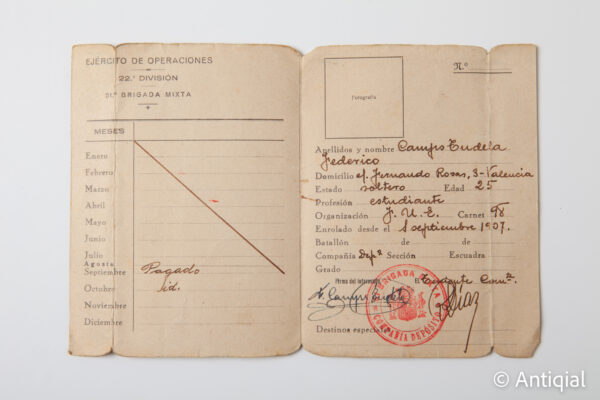 EJÉRCITO DE OPERACIONES
22.ª DIVISIÓN
51.ª BRIGADA MIXTA
MESES
Enero
Febrero
Marzo
Abril
Mayo
Junio
Julio
Agosto
Septiembre Pagado
Octubre id.
Noviembre
Diciembre
N.º
Fotografía
Apellidos y nombre Camps Tudela
Federico
Domicilio c/. Fernando Rosas, 3-Valencia
Estado soltero Edad 25
Profesión estudiante
Organización J. U. E. Carnet 98
Enrolado desde el 1 septiembre 1937.
Batallón de
Compañía Dep.º Sección Escuadra
Grado
Firma del interesado El Teniente Com.te
F. Camps Tudela Díaz
BRIGADA MIXTA
COMPAÑÍA DEPÓSITO
Destinos
© Antiqial